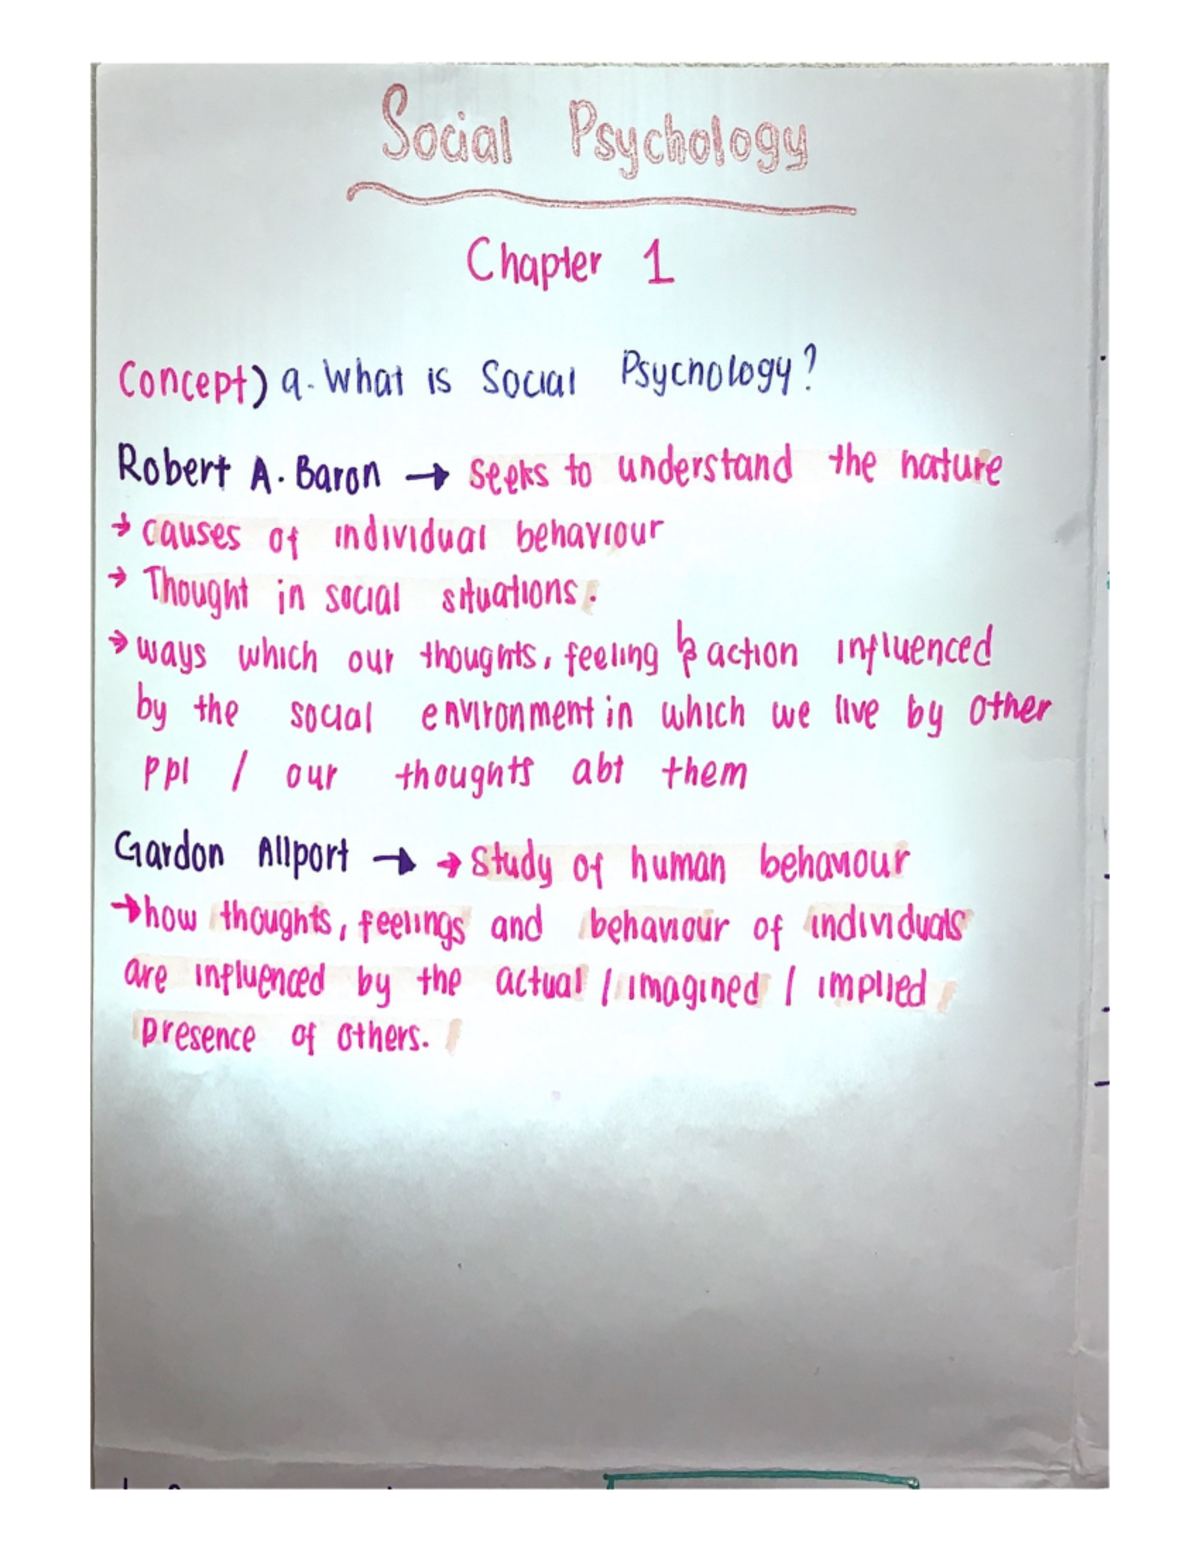 Social Psychology
Chapter 1
Concept) a. What is Social Psychology?
Robert A. Baron → seeks to understand the nature
→ causes of individual behaviour
→ Thought in social situations.
→ ways which our thoughts, feeling & action influenced
by the social environment in which we live by other
ppl / our thoughts abt them
Gardon Allport → → study of human behaviour
→ how thoughts, feelings and behaviour of individuals
are influenced by the actual / imagined / implied
presence of others.